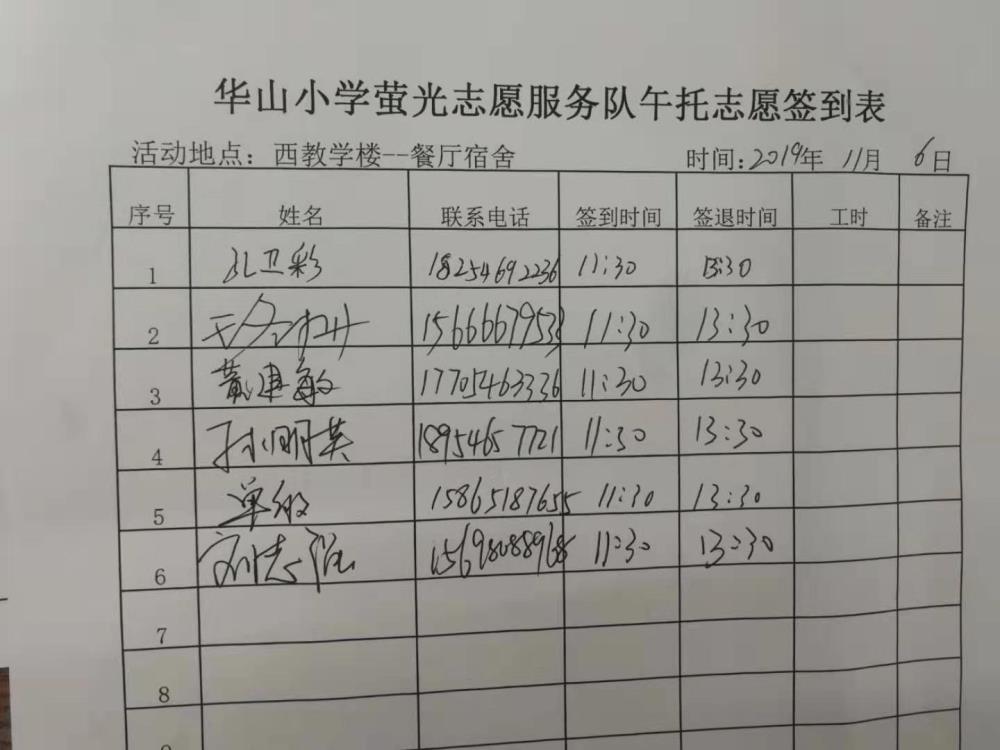 华山小学萤光志愿服务队午托志愿签到表
活动地点：西教学楼--餐厅宿舍 时间：2019年 11月 6日
序号 姓名 联系电话 签到时间 签退时间 工时 备注
1 孔卫彩 18254692236 11:30 13:30
2 15666679538 11:30 13:30
3 黄建敏 17705463336 11:30 13:30
4 孙明英 18954657721 11:30 13:30
5 单敏 15865187655 11:30 13:30
6 刘志强 11:30 13:30
7
8